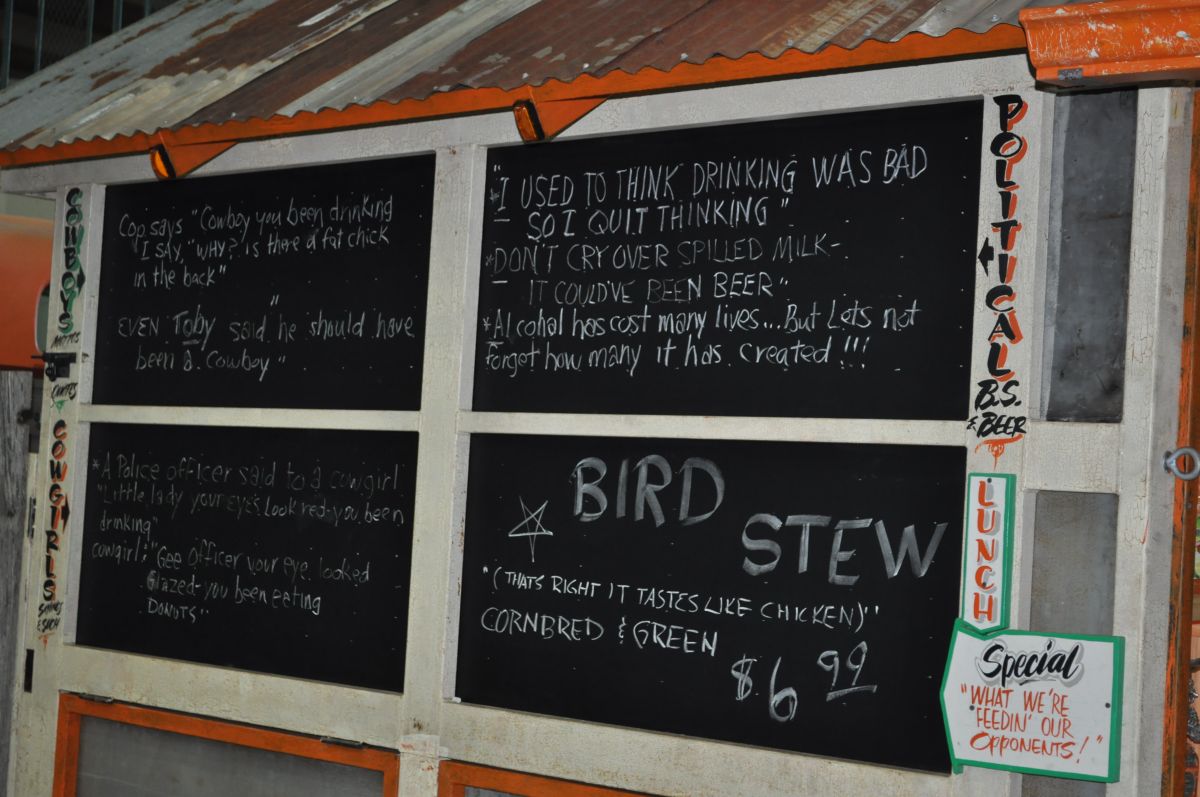 COWBOYS
QUOTES
COWGIRLS
Cop says "Cowboy you been drinking
I SAY, "WHY? is there a fat chick
in the back"
EVEN Toby said "he should have
been a cowboy"
"*I USED TO THINK DRINKING WAS BAD
SO I QUIT THINKING"
*DON'T CRY OVER SPILLED MILK-
IT COULD'VE BEEN BEER"
*Alcohal has cost many lives... But Lets not
forget how many it has created!!!
*A Police officer said to a cowgirl
"Little lady your eye's look red-you been
drinking"
cowgirl: "Gee Officer your eye looked
Glazed-you been eating
DONUTS"
BIRD
STEW
"(THATS RIGHT IT TASTES LIKE CHICKEN)"
CORNBRED & GREEN
$6 99
POLITICAL
B.S.
& BEER
LUNCH
Special
"WHAT WE'RE
FEEDIN' OUR
OPPONENTS!"